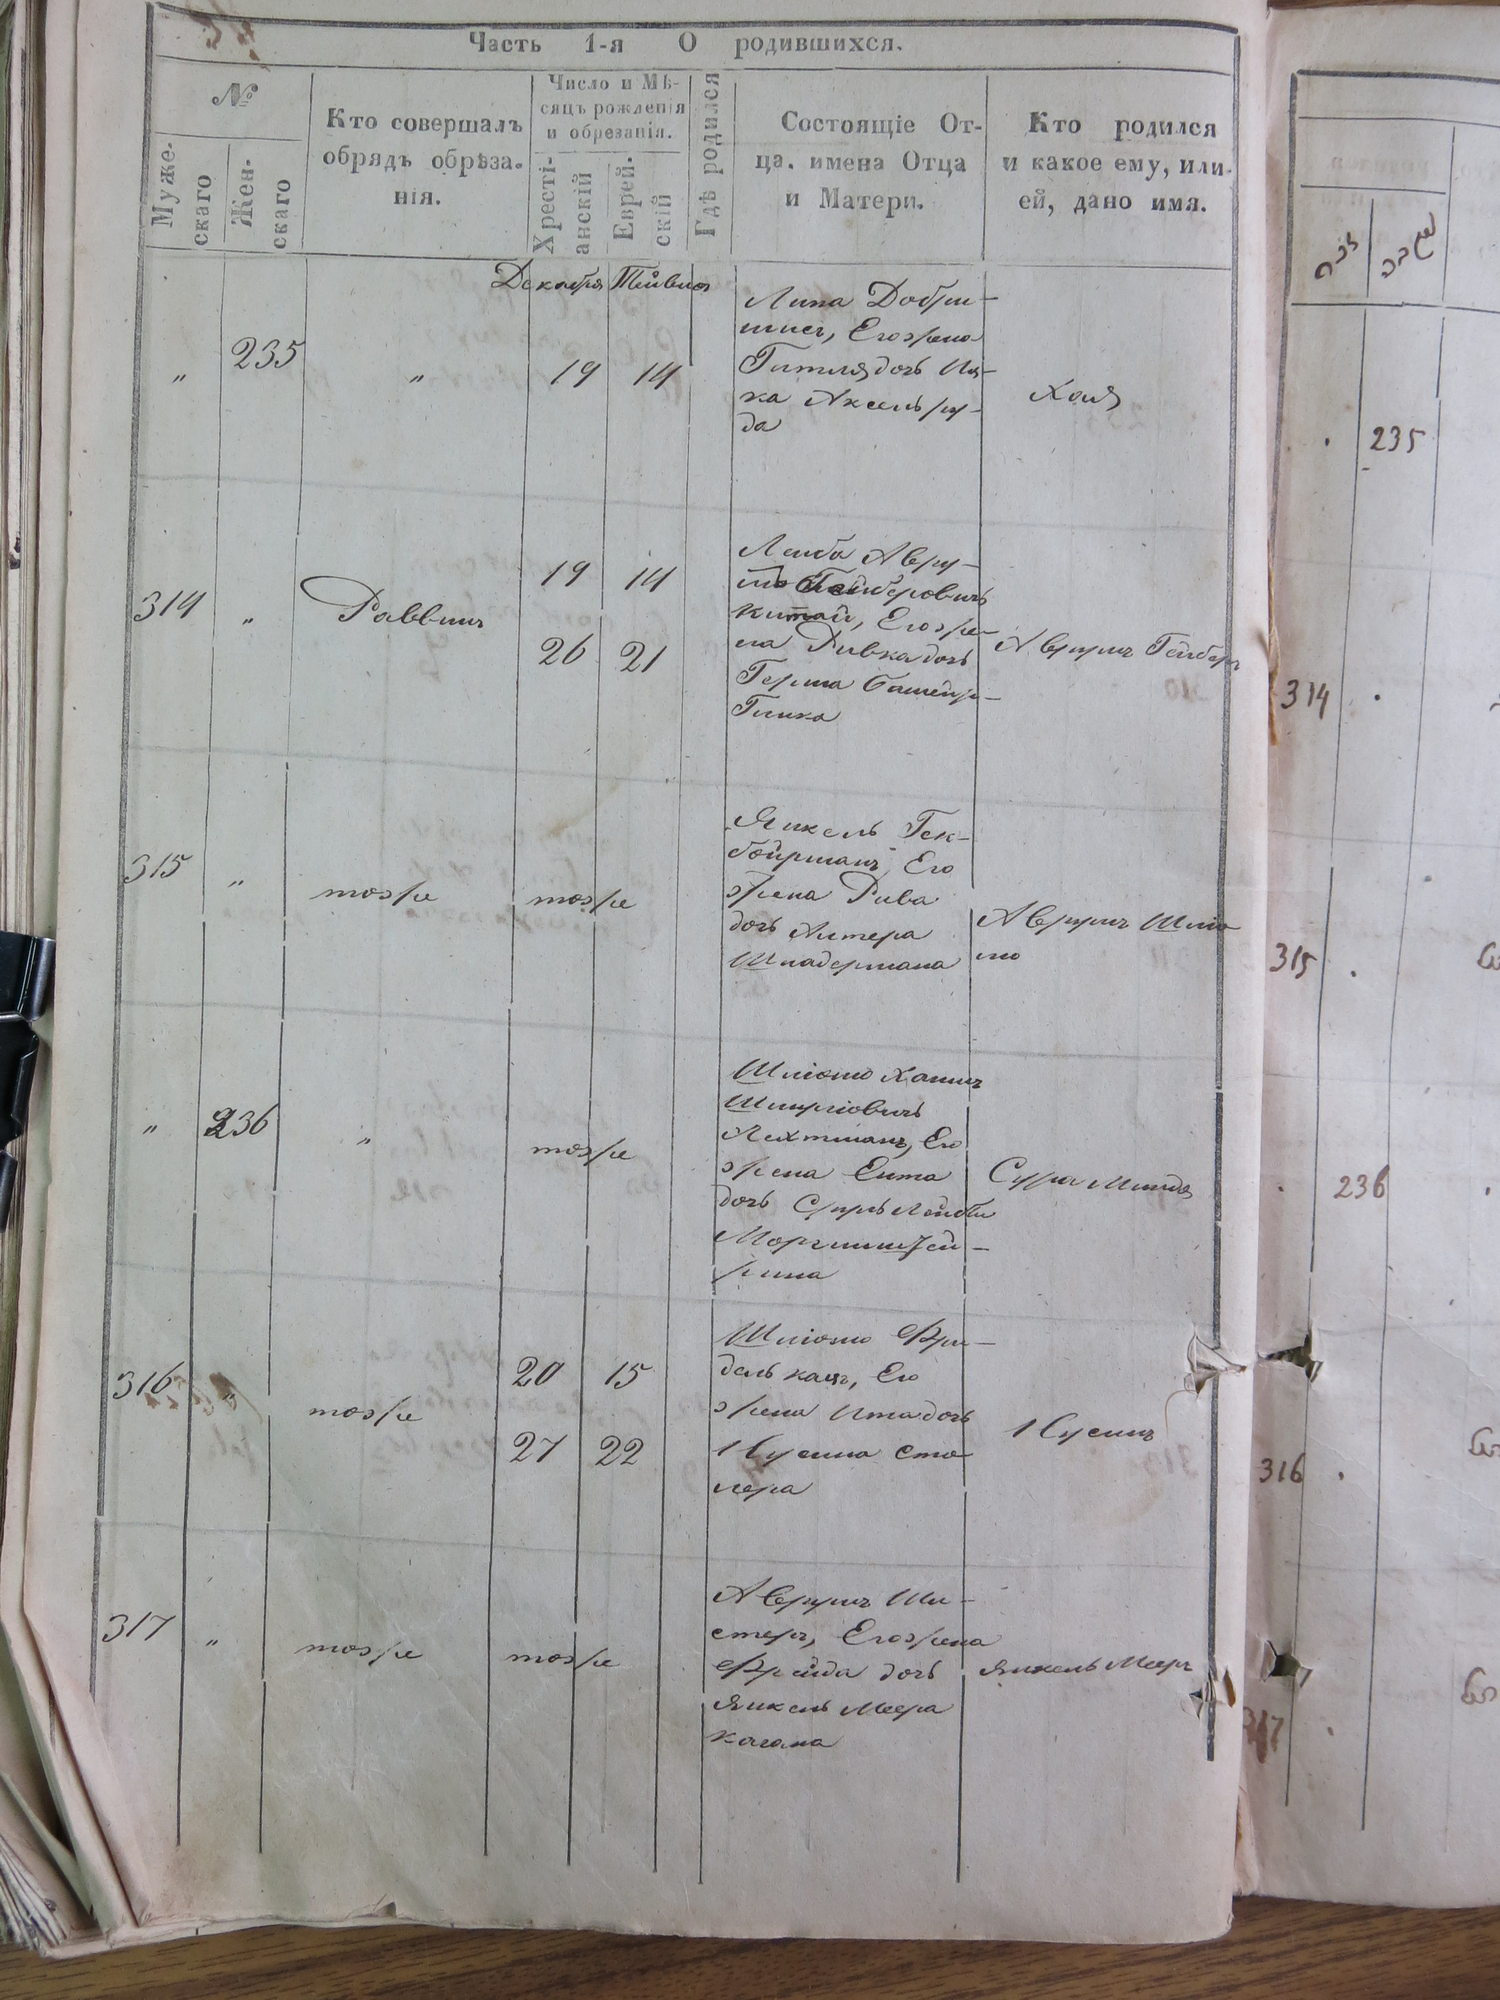 Часть 1-я О родившихся.
№
Муже-
скаго
Жен-
скаго
Кто совершалъ
обрядъ обрѣза-
нія.
Число и Мѣ-
сяцъ рожденія
и обрезанія.
Христі-
анскій
Еврей-
скій
Гдѣ родился
Состоящіе От-
ца, имена Отца
и Матери.
Кто родился
и какое ему, или
ей, дано имя.
Декабря Тейвиса
" 235 " 19 14
Его жена
Гитля дочь
ка Аксельру-
да
Хая
314 " Раввинъ
19 14
26 21
Лейба Авру-
Гейберовичъ
Китай, Его же-
на Ривка дочь
Герша
Аврумъ Гейберъ
315 " тоже тоже
Янкель Гек-
бойрманъ, Его
жена Рива
дочь Алтера
Шнадермана
Аврумъ Шлио-
мо
" 236 " тоже
Шліомо Хаимъ
Шмуліовичъ
Лехтманъ, Его
жена Ента
дочь Сруль Лейби
Сура Миндя
316 " тоже
20 15
27 22
Шліомо Фри-
дель кацъ, Его
жена Ита дочь
Нусина Сто-
лера
Нусинъ
317 " тоже тоже
Аврумъ Ши-
стеръ, Его жена
Фрейда дочь
Янкель Меера
Кагана
Янкель Мееръ
זכר
נקבה
235
314
315
236
316
317